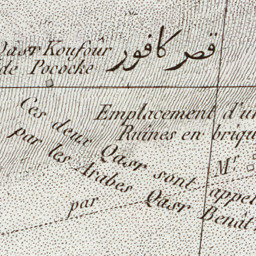 Qasr Koufour قصر كافور
de Pococke
Emplacement d'un
Ruines en brique
Ces deux Qasr sont appel
par les Arabes Qasr Benât
par
Mr